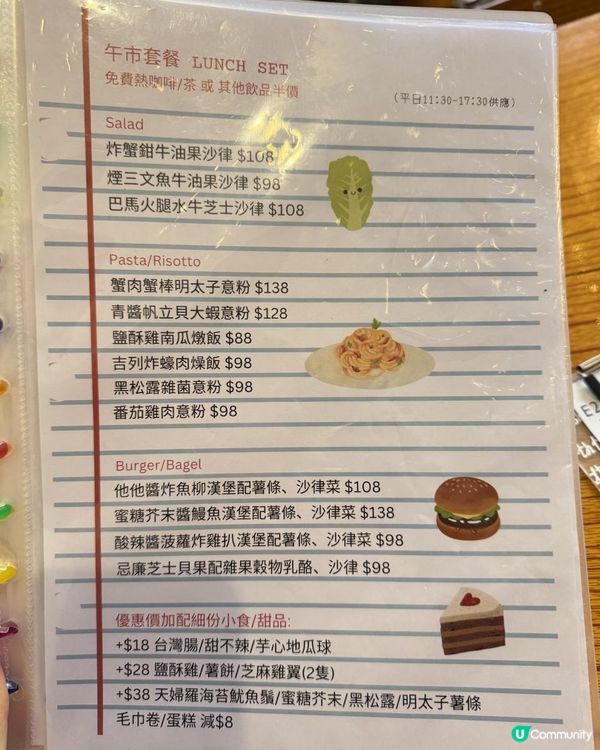 午市套餐 LUNCH SET
免費熱咖啡/茶 或 其他飲品半價
(平日11:30-17:30供應)
Salad
炸蟹鉗牛油果沙律 $108
煙三文魚牛油果沙律 $98
巴馬火腿水牛芝士沙律 $108
Pasta/Risotto
蟹肉蟹棒明太子意粉 $138
青醬帆立貝大蝦意粉 $128
鹽酥雞南瓜燉飯 $88
吉列炸蠔肉燥飯 $98
黑松露雜菌意粉 $98
番茄雞肉意粉 $98
Burger/Bagel
他他醬炸魚柳漢堡配薯條、沙律菜 $108
蜜糖芥末醬鰻魚漢堡配薯條、沙律菜 $138
酸辣醬菠蘿炸雞扒漢堡配薯條、沙律菜 $98
忌廉芝士貝果配雜果穀物乳酪、沙律 $98
優惠價加配細份小食/甜品:
+$18 台灣腸/甜不辣/芋心地瓜球
+$28 鹽酥雞/薯餅/芝麻雞翼(2隻)
+$38 天婦羅海苔魷魚鬚/蜜糖芥末/黑松露/明太子薯條
毛巾卷/蛋糕 減$8
E2
U Community